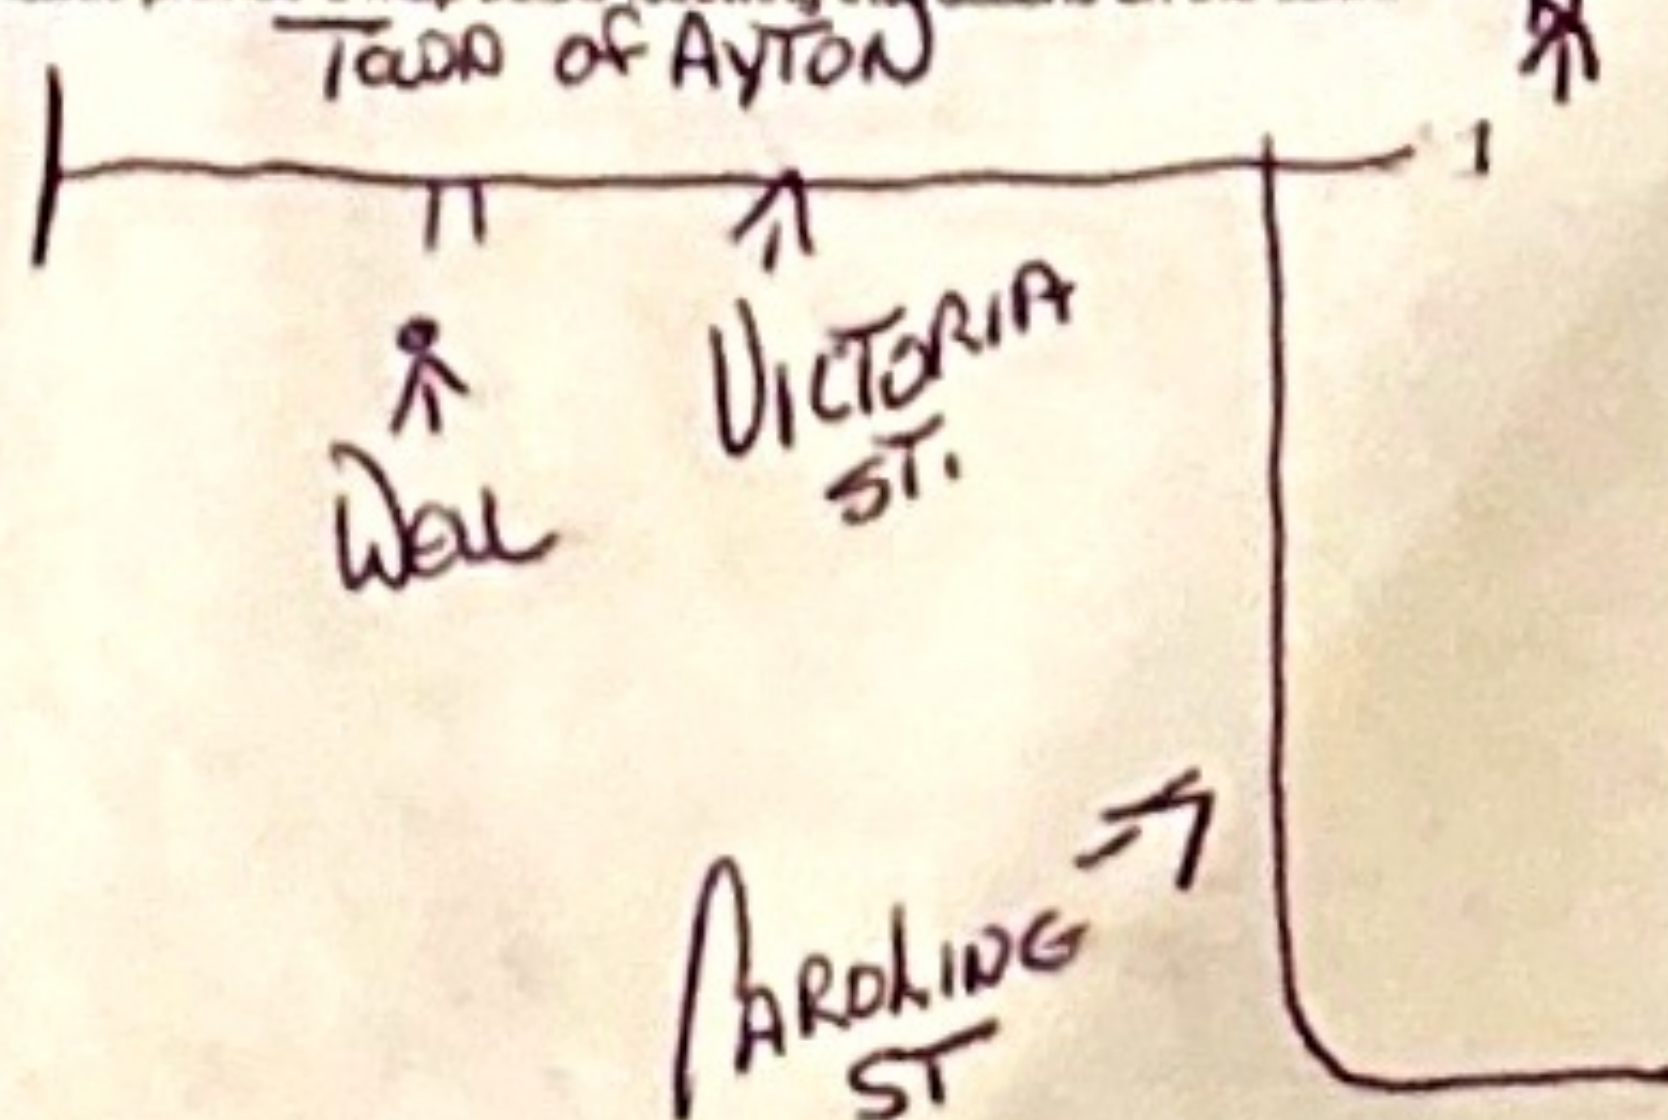 Town of AYTON
1
WELL
VICTORIA
ST.
CAROLINE
ST